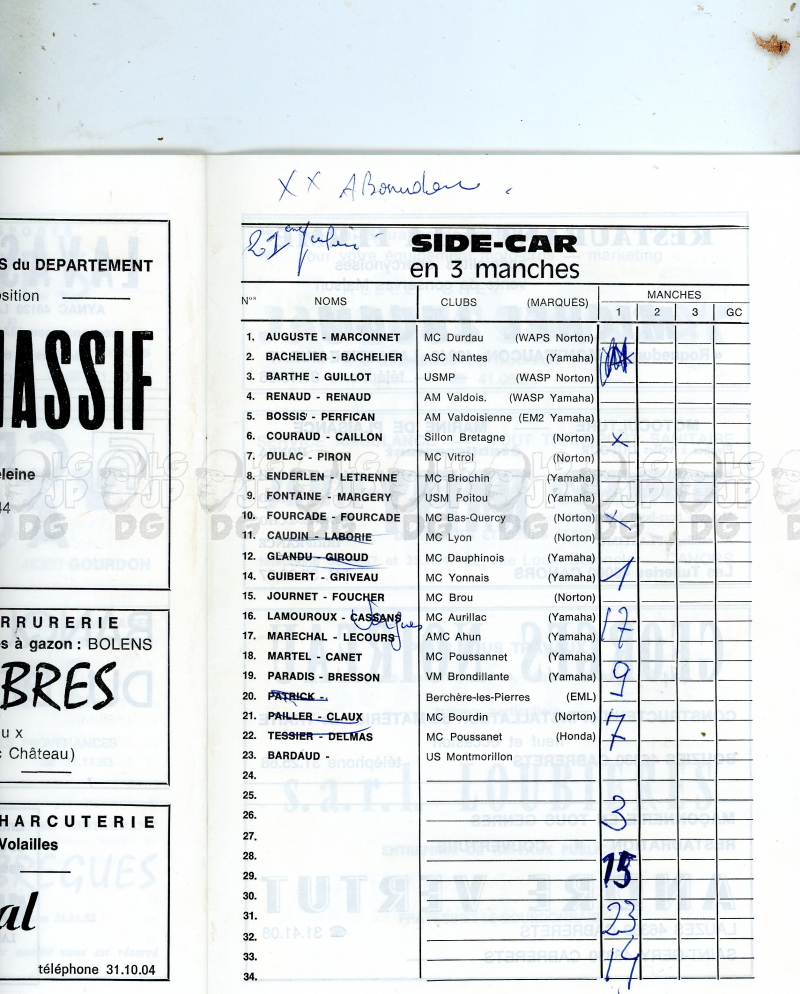 XX Abandon.
21 ème
SIDE-CAR
en 3 manches
Nos NOMS CLUBS (MARQUES) MANCHES
1 2 3 GC
1. AUGUSTE - MARCONNET MC Durdau (WAPS Norton)
2. BACHELIER - BACHELIER ASC Nantes (Yamaha)
3. BARTHE - GUILLOT USMP (WASP Norton)
4. RENAUD - RENAUD AM Valdois. (WASP Yamaha)
5. BOSSIS - PERFICAN AM Valdoisienne (EM2 Yamaha)
6. COURAUD - CAILLON Sillon Bretagne (Norton) x
7. DULAC - PIRON MC Vitrol (Norton)
8. ENDERLEN - LETRENNE MC Briochin (Yamaha)
9. FONTAINE - MARGERY USM Poitou (Yamaha)
10. FOURCADE - FOURCADE MC Bas-Quercy (Norton) x
11. CAUDIN - LABORIE MC Lyon (Norton)
12. GLANDU - GIROUD MC Dauphinois (Yamaha)
14. GUIBERT - GRIVEAU MC Yonnais (Yamaha) 1
15. JOURNET - FOUCHER MC Brou (Norton)
16. LAMOUROUX - CASSANS MC Aurillac (Yamaha) 17
17. MARECHAL - LECOURS AMC Ahun (Yamaha)
18. MARTEL - CANET MC Poussannet (Yamaha)
19. PARADIS - BRESSON VM Brondillante (Yamaha) 9
20. PATRICK - Berchère-les-Pierres (EML)
21. PAILLER - CLAUX MC Bourdin (Norton) 7
22. TESSIER - DELMAS MC Poussanet (Honda)
23. BARDAUD - US Montmorillon
24.
25.
26. 3
27.
28.
29. 15
30.
31. 23
32.
33.
34. 14
S du DEPARTEMENT
osition
MASSIF
eleine
44
RRURERIE
s à gazon : BOLENS
BRES
u x
c Château)
HARCUTERIE
Volailles
al
téléphone 31.10.04
LG JP DG